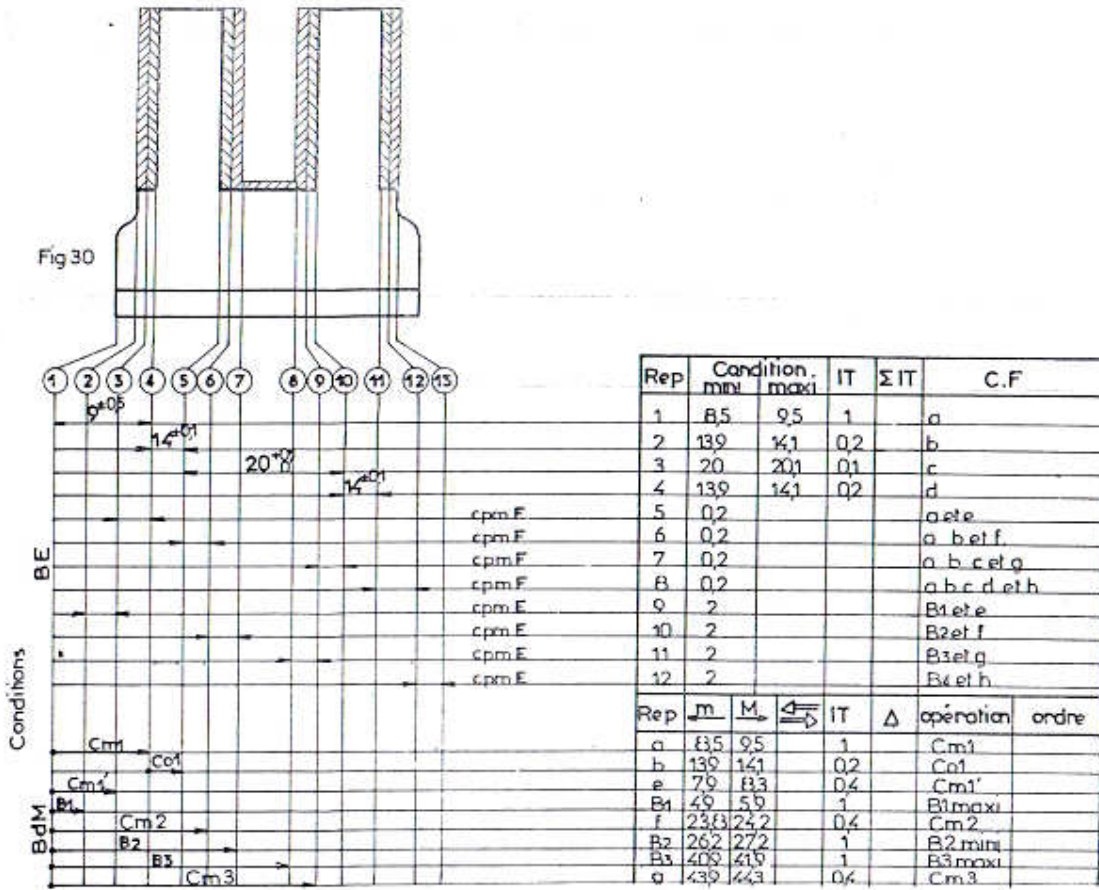 Fig 30
1 2 3 4 5 6 7 8 9 10 11 12 13
9±0,5
14±0,1
20
14±0,1
cpm F
cpm F
cpm F
cpm F
cpm E
cpm E
cpm E
cpm E
BE
Conditions
BdM
Cm1
Co1
Cm1'
B1
Cm2
B2
B3
Cm3
Rep Condition mini maxi IT Σ IT C.F
1 8,5 9,5 1 a
2 13,9 14,1 0,2 b
3 20 20,1 0,1 c
4 13,9 14,1 0,2 d
5 0,2 a et e
6 0,2 a b et f.
7 0,2 a b c et g
8 0,2 a b c d et h
9 2 B1 et e
10 2 B2 et f
11 2 B3 et g
12 2 B4 et h
Rep m M IT Δ opération ordre
a 8,5 9,5 1 Cm1
b 13,9 14,1 0,2 Co1
e 7,9 8,3 0,4 Cm1'
B1 4,9 5,9 1 B1 maxi
f 23,8 24,2 0,4 Cm2
B2 26,2 27,2 1 B2 mini
B3 40,9 41,9 1 B3 maxi
g 43,9 44,3 0,4 Cm3